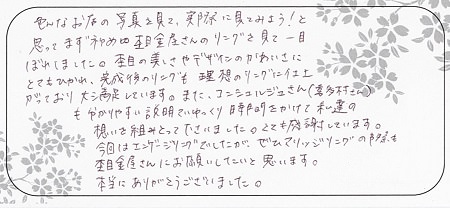 色んなお店の写真を見て、実際に見てみよう！と
思ってまず初めに杢目金屋さんのリングを見て一目
ぼれしました。杢目の美しさやデザインのかわいさに
とてもひかれ、完成後のリングも理想のリングに仕上
がっており大満足しています。また、コンシェルジュさん(喜多村さん)
も分かりやすい説明でゆっくり時間をかけて私達の
想いを組みとって下さいました。とても感謝しています。
今回はエンゲージリングでしたが、ぜひマリッジリングの際も
杢目金屋さんにお願いしたいと思います。
本当にありがとうございました。